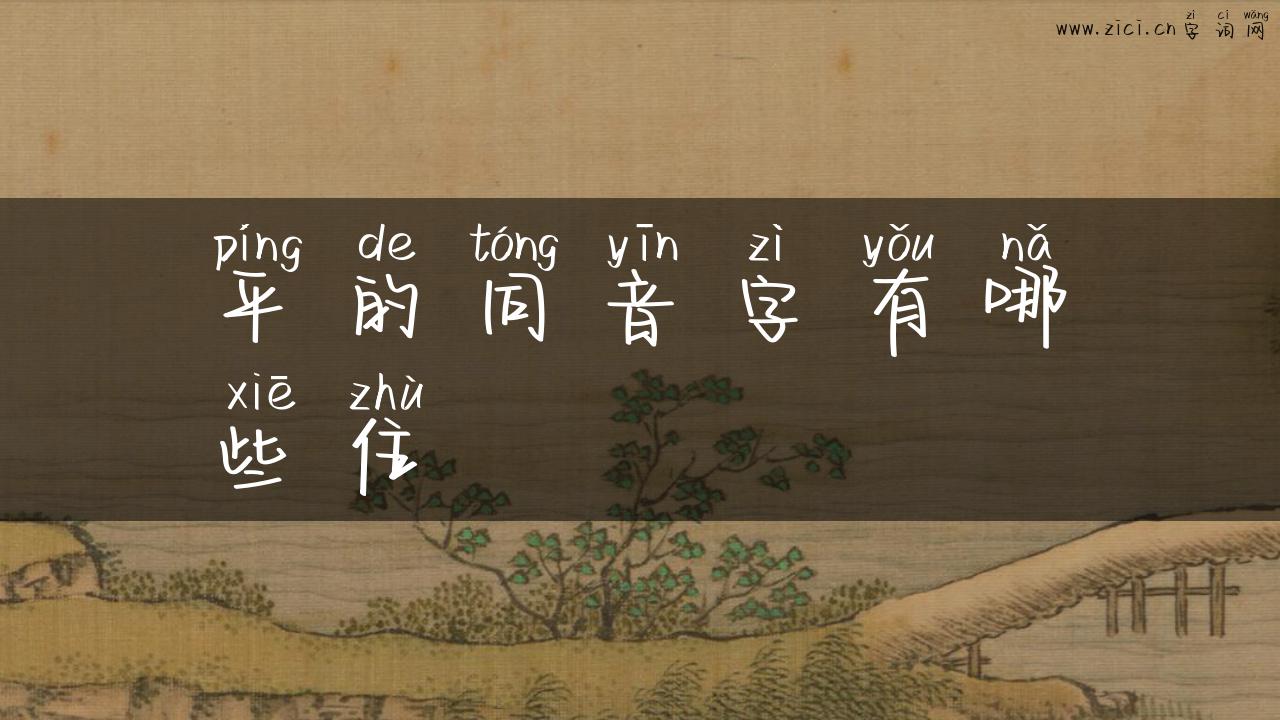 zì cí wǎng
www.zici.cn 字词网
píng de tóng yīn zì yǒu nǎ
平的同音字有哪
xiē zhù
些住